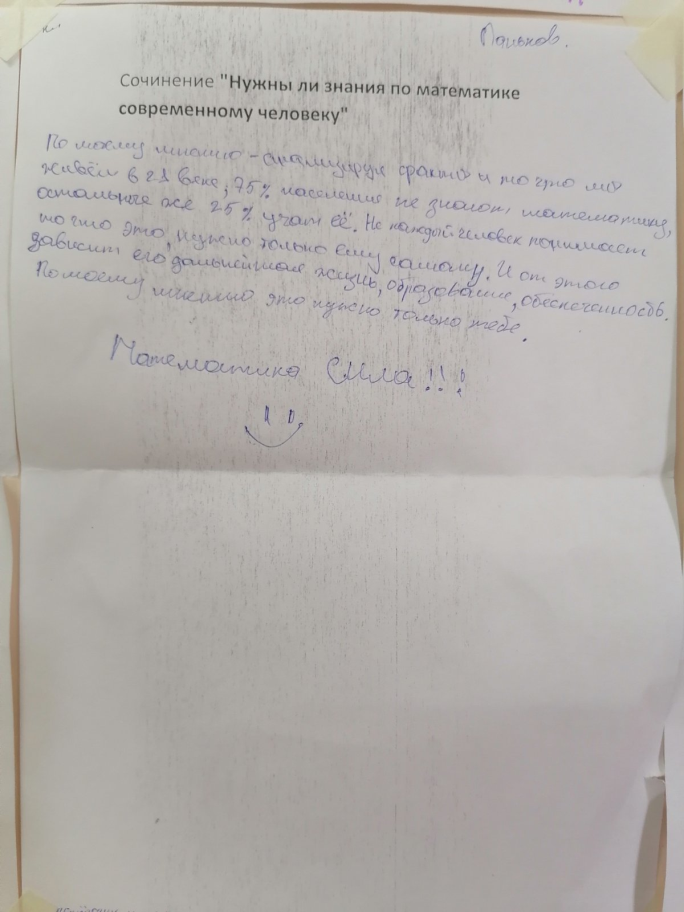 Паньков.
Сочинение "Нужны ли знания по математике
современному человеку"
По моему мнению - анализируя факты и то что мы
живём в 21 веке, 75% населения не знают математику,
остальные же 25% учат её. Не каждый человек понимает
то что это, нужно только ему самому. И от этого
зависит его дальнейшая жизнь, образование, обеспеченность.
По моему мнению это нужно только тебе.
Математика Сила!!!